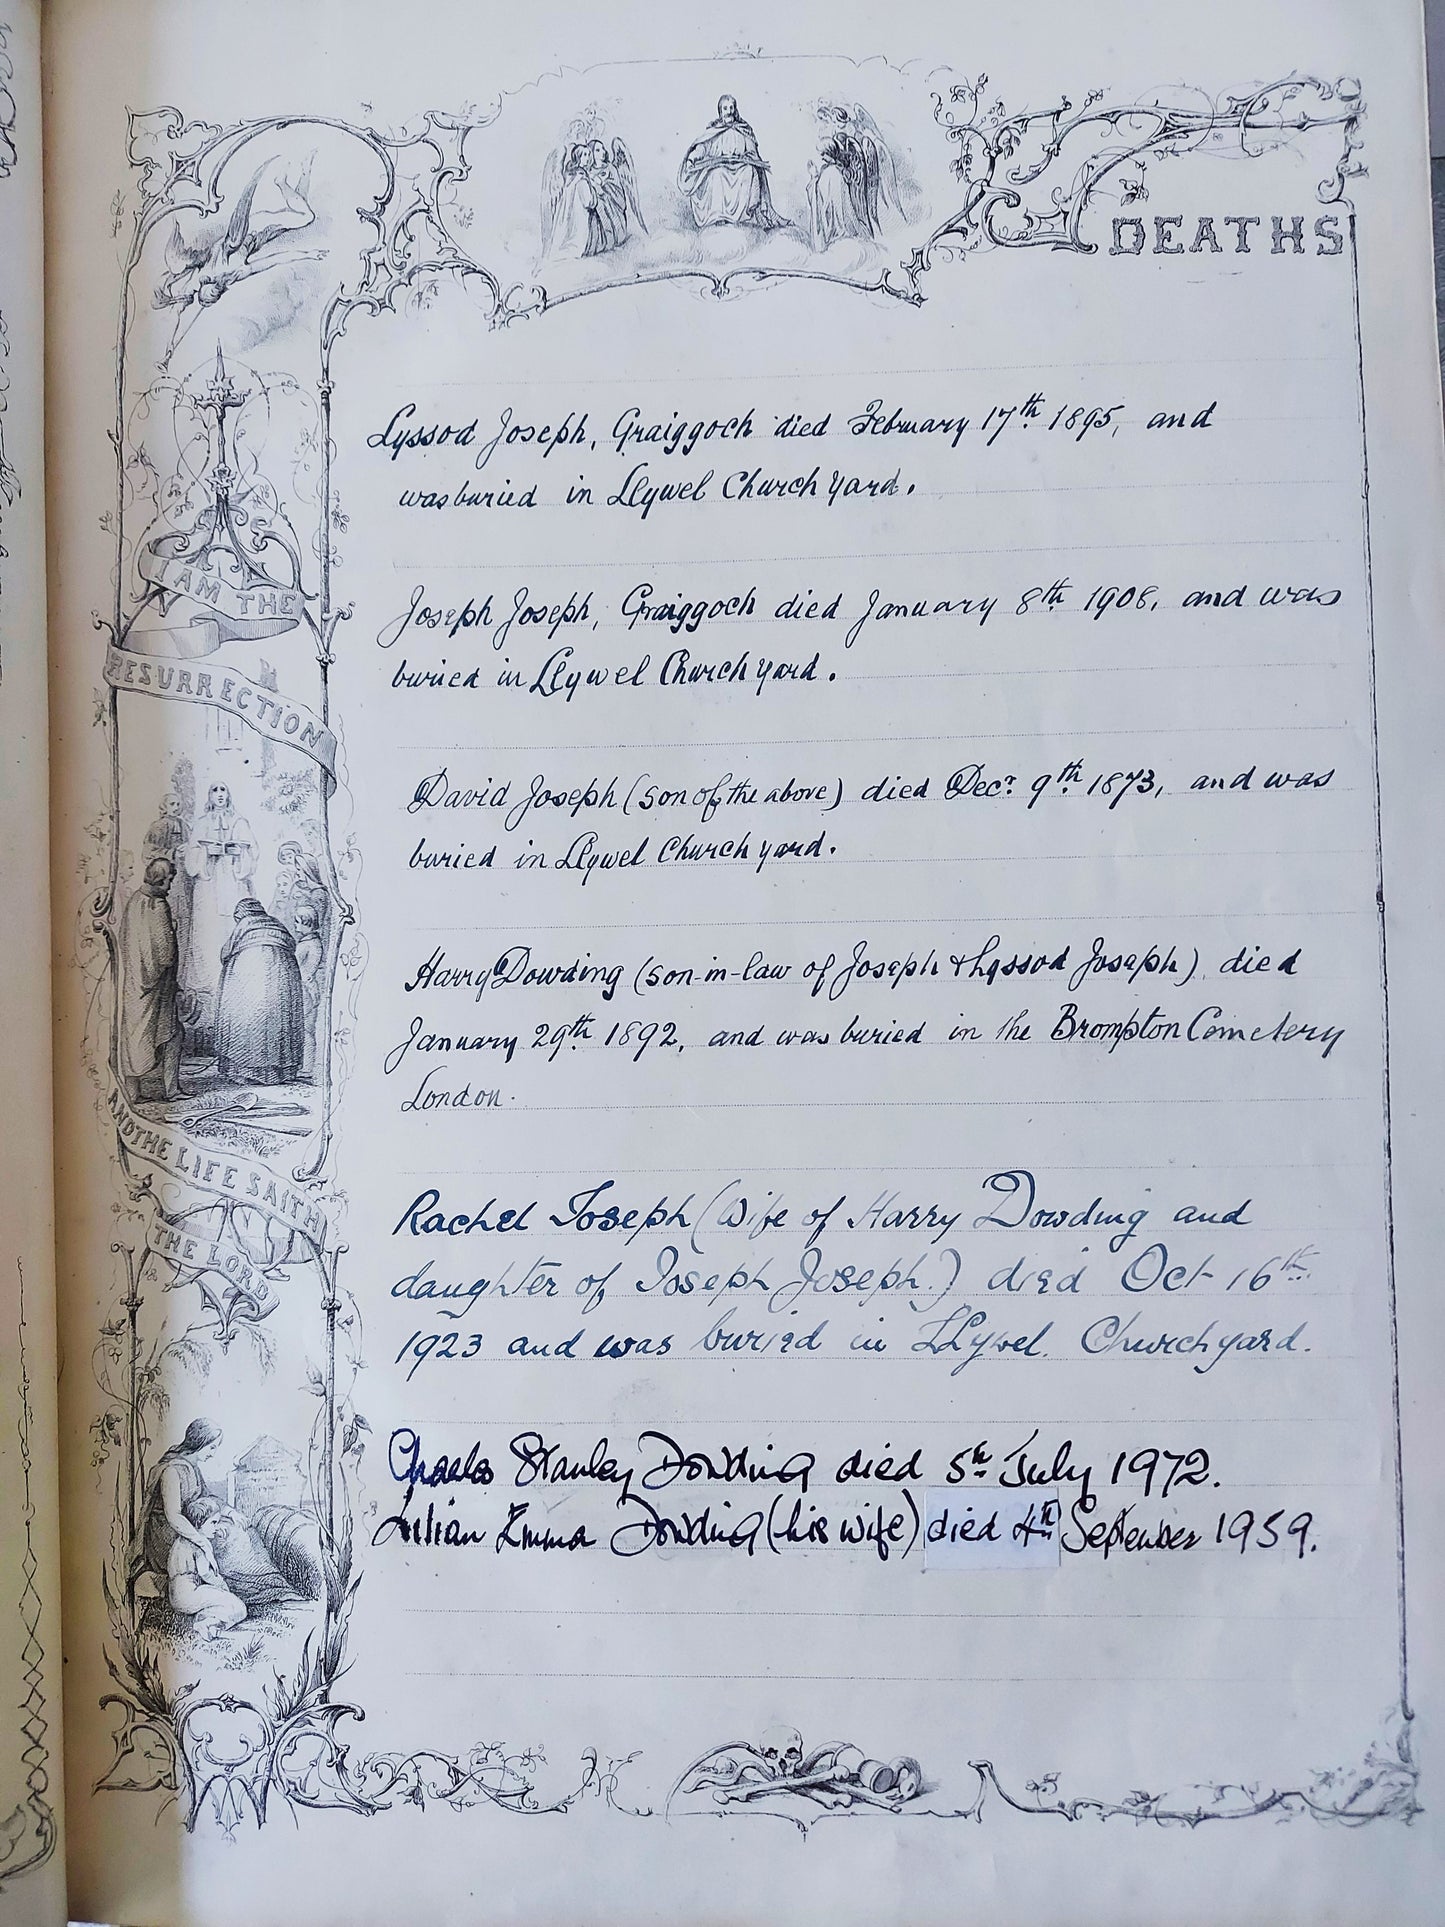 DEATHS
Lyssod Joseph, Graiggoch died February 17th 1895, and
was buried in Llywel Church yard.
Joseph Joseph, Graiggoch died January 8th 1908, and was
buried in Llywel Church yard.
David Joseph (son of the above) died Decr. 9th 1873, and was
buried in Llywel Church yard.
Harry Dowding (son-in-law of Joseph & Lyssod Joseph) died
January 29th 1892, and was buried in the Brompton Cemetery
London.
Rachel Joseph (Wife of Harry Dowding and
daughter of Joseph Joseph.) died Oct 16th
1923 and was buried in LLywel. Churchyard.
Charles Stanley Dowding died 5th July 1972.
Lilian Emma Dowding (his wife) died 4th September 1959.
I AM THE
RESURRECTION
AND THE LIFE SAITH
THE LORD